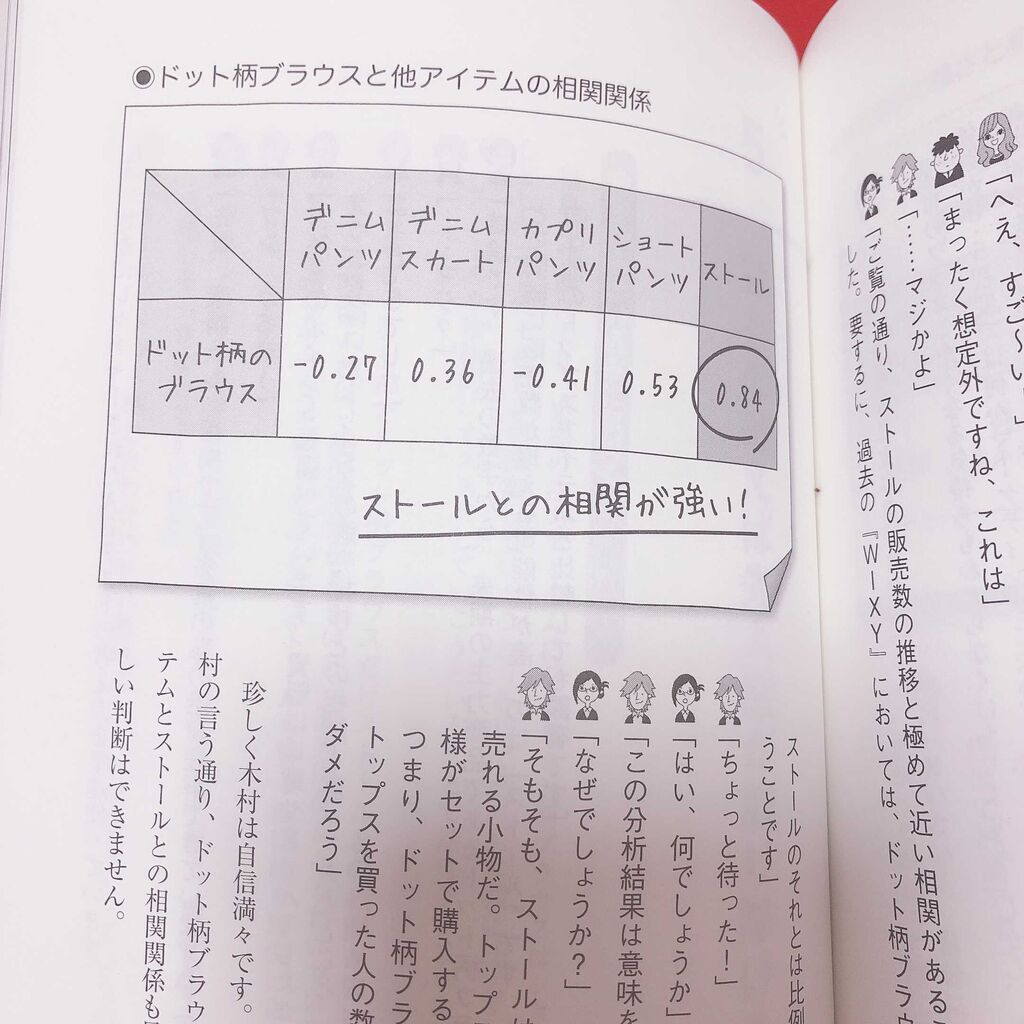 「へえ、すご〜い。」
「まったく想定外ですね、これは」
「……マジかよ」
「ご覧の通り、ストールの販売数の推移と極めて近い相関がある
した。要するに、過去の『WIXY』においては、ドット柄ブラウ
◉ドット柄ブラウスと他アイテムの相関関係
デニムパンツ デニムスカート カプリパンツ ショートパンツ ストール
ドット柄のブラウス -0.27 0.36 -0.41 0.53 0.84
ストールとの相関が強い!
ストールのそれとは比例
うことです」
「ちょっと待った!」
「はい、何でしょうか
「この分析結果は意味を
「なぜでしょうか?」
「そもそも、ストールは
売れる小物だ。トップ
様がセットで購入する
つまり、ドット柄ブラ
トップスを買った人の数
ダメだろう」
珍しく木村は自信満々です。
村の言う通り、ドット柄ブラウ
テムとストールとの相関関係も
しい判断はできません。